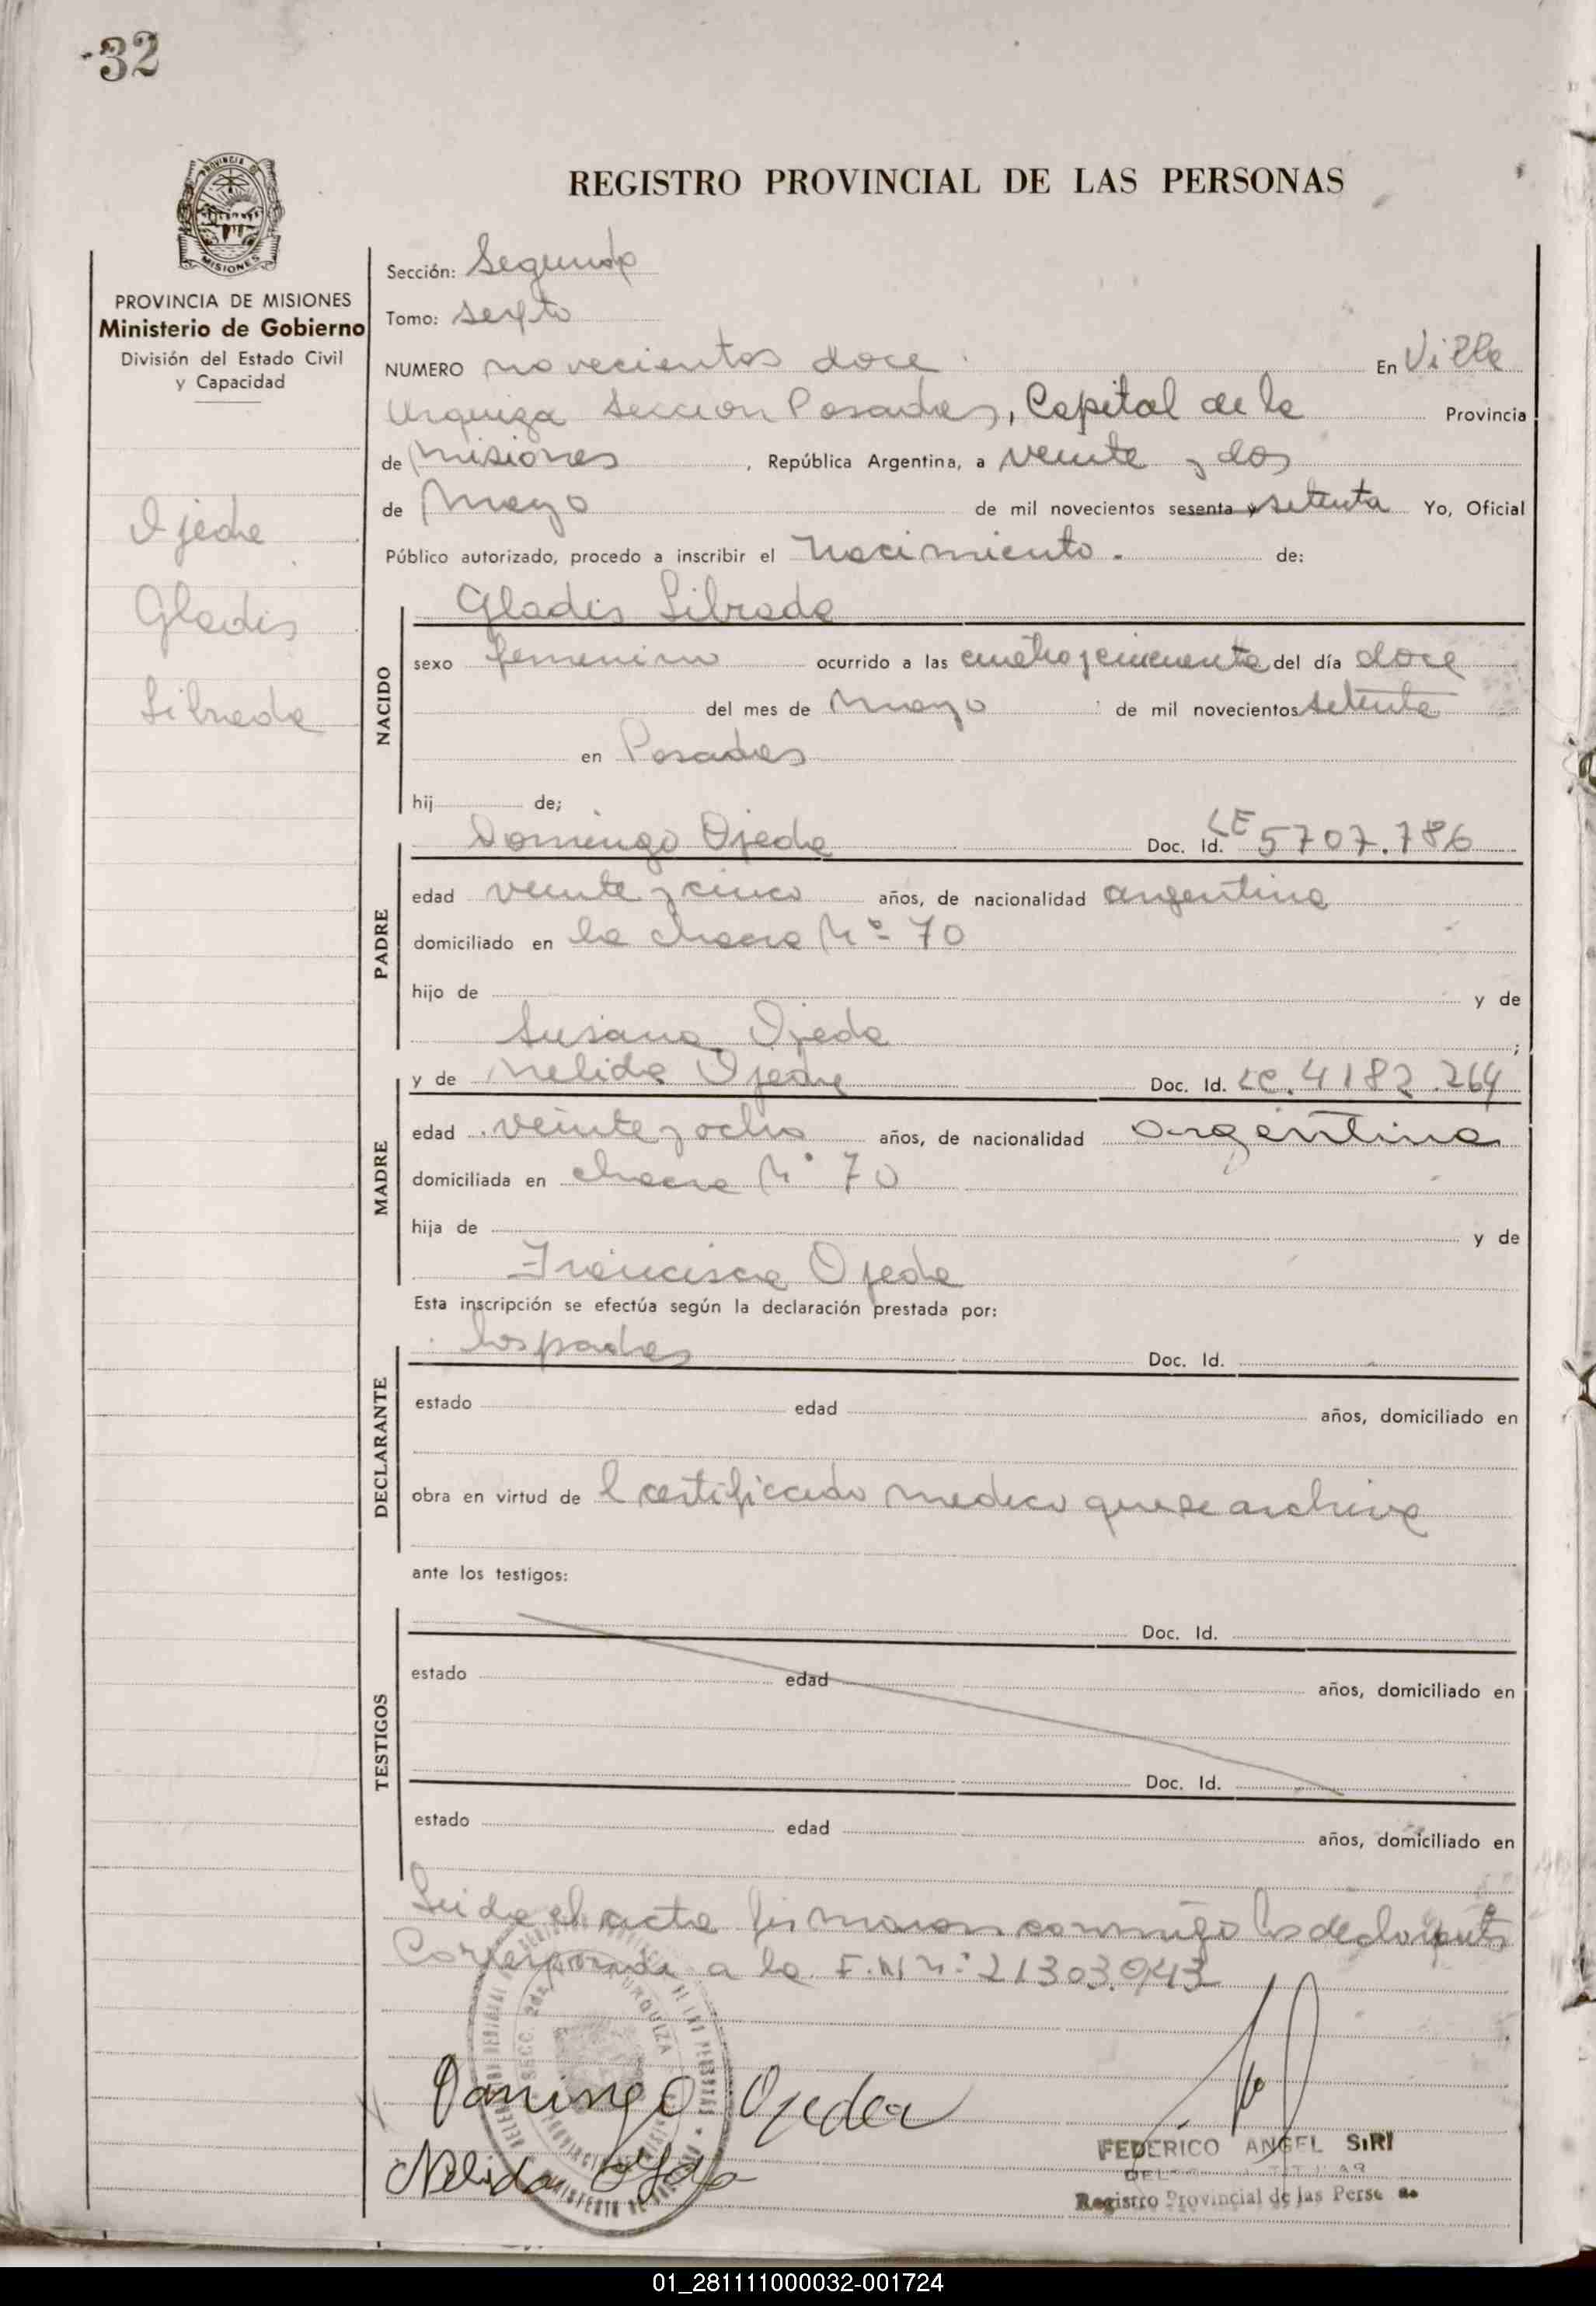 -32
REGISTRO PROVINCIAL DE LAS PERSONAS
PROVINCIA DE MISIONES
Ministerio de Gobierno
División del Estado Civil
y Capacidad
Ojeda
Gladis
Librada
Sección: Segunda
Tomo: sexto
NUMERO novecientos doce En Villa
Urquiza Seccion Posadas, Capital de la Provincia
de Misiones, República Argentina, a veinte y dos
de Mayo de mil novecientos sesenta y setenta Yo, Oficial
Público autorizado, procedo a inscribir el Nacimiento. de:
NACIDO
Gladis Librada
sexo femenino ocurrido a las cuatro y cincuenta del día doce
del mes de Mayo de mil novecientos setenta
en Posadas
hij de;
PADRE
Domingo Ojeda Doc. Id. LE 5707.786
edad veinte y cinco años, de nacionalidad argentina
domiciliado en la chacra Nº 70
hijo de y de
Susana Ojeda ;
MADRE
y de Nelida Ojeda Doc. Id. LC. 4182.264
edad veinte y ocho años, de nacionalidad argentina
domiciliada en chacra Nº 70
hija de y de
Francisca Ojeda
Esta inscripción se efectúa según la declaración prestada por:
DECLARANTE
los padres Doc. Id.
estado edad años, domiciliado en
obra en virtud de l certificado medico que se archiva
ante los testigos:
TESTIGOS
Doc. Id.
estado edad años, domiciliado en
Doc. Id.
estado edad años, domiciliado en
Leida el acta firmaron conmigo los declarants
Corresponde a la F.N nº 21303.043
Domingo Ojeda
Nelida Ojeda
FEDERICO ANGEL SIRI
Registro Provincial de las Perso as
01_281111000032-001724